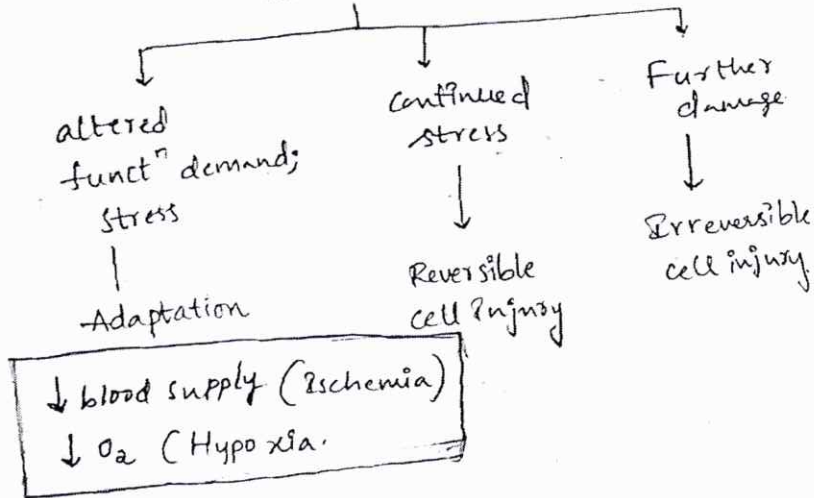 altered
functⁿ demand;
stress
Adaptation
continued
stress
Reversible
cell injury
Further
damage
Irreversible
cell injury.
↓ blood supply (Ischemia)
↓ O₂ (Hypoxia.